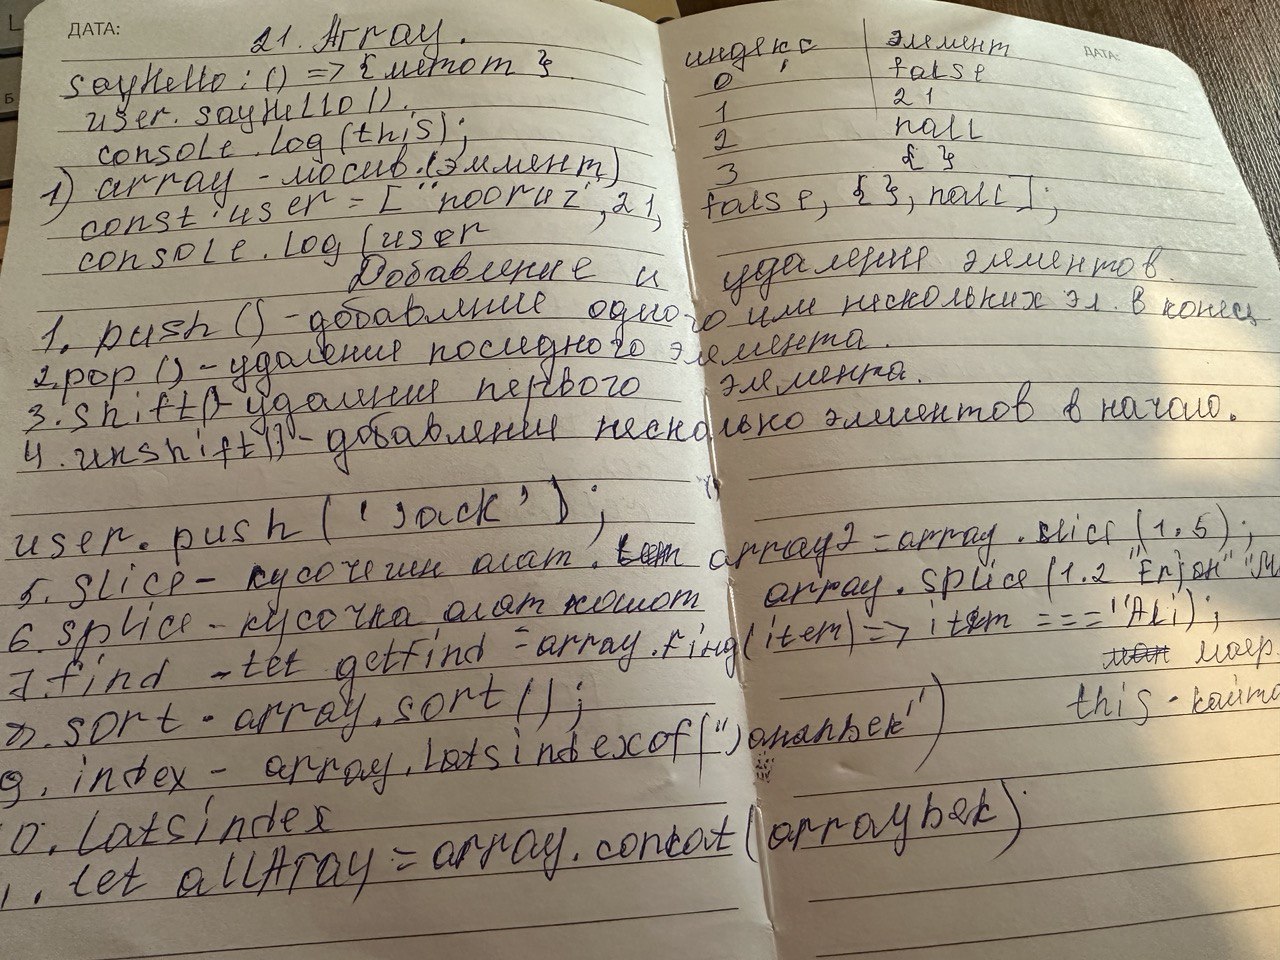 ДАТА:
21. Array.
sayHello: () => { метот }
user. sayHello ().
console. log (this);
1) array - мосив. (элимент)
const: user = [ "nooruz", 21,
console. log (user
индекс элемент
ДАТА:
0 false
1 21
2 null
3 { }
false, { }, null ];
Добавление и удаление элементов.
1. push () - добавление одного или нескольких эл. в конец
2. pop () - удаление последного элемента.
3. shift() - удаления первого элемента.
4. unshift() - добавление несколько элментов в начало.
user. push ( 'Jack' );
5. slice - кусочегин алат. array2 = array. slice (1. 5);
6. splice - кусочка алат кошот array. splice (1. 2 "Erjan"
7. find - let getfind = array. fing (item) => item === "Ali);
8. sort - array. sort ();
this -
9. index - array. latsindexof ("Jанарbек")
0. latsindex
1. let allAray = array. concat (arraybek)